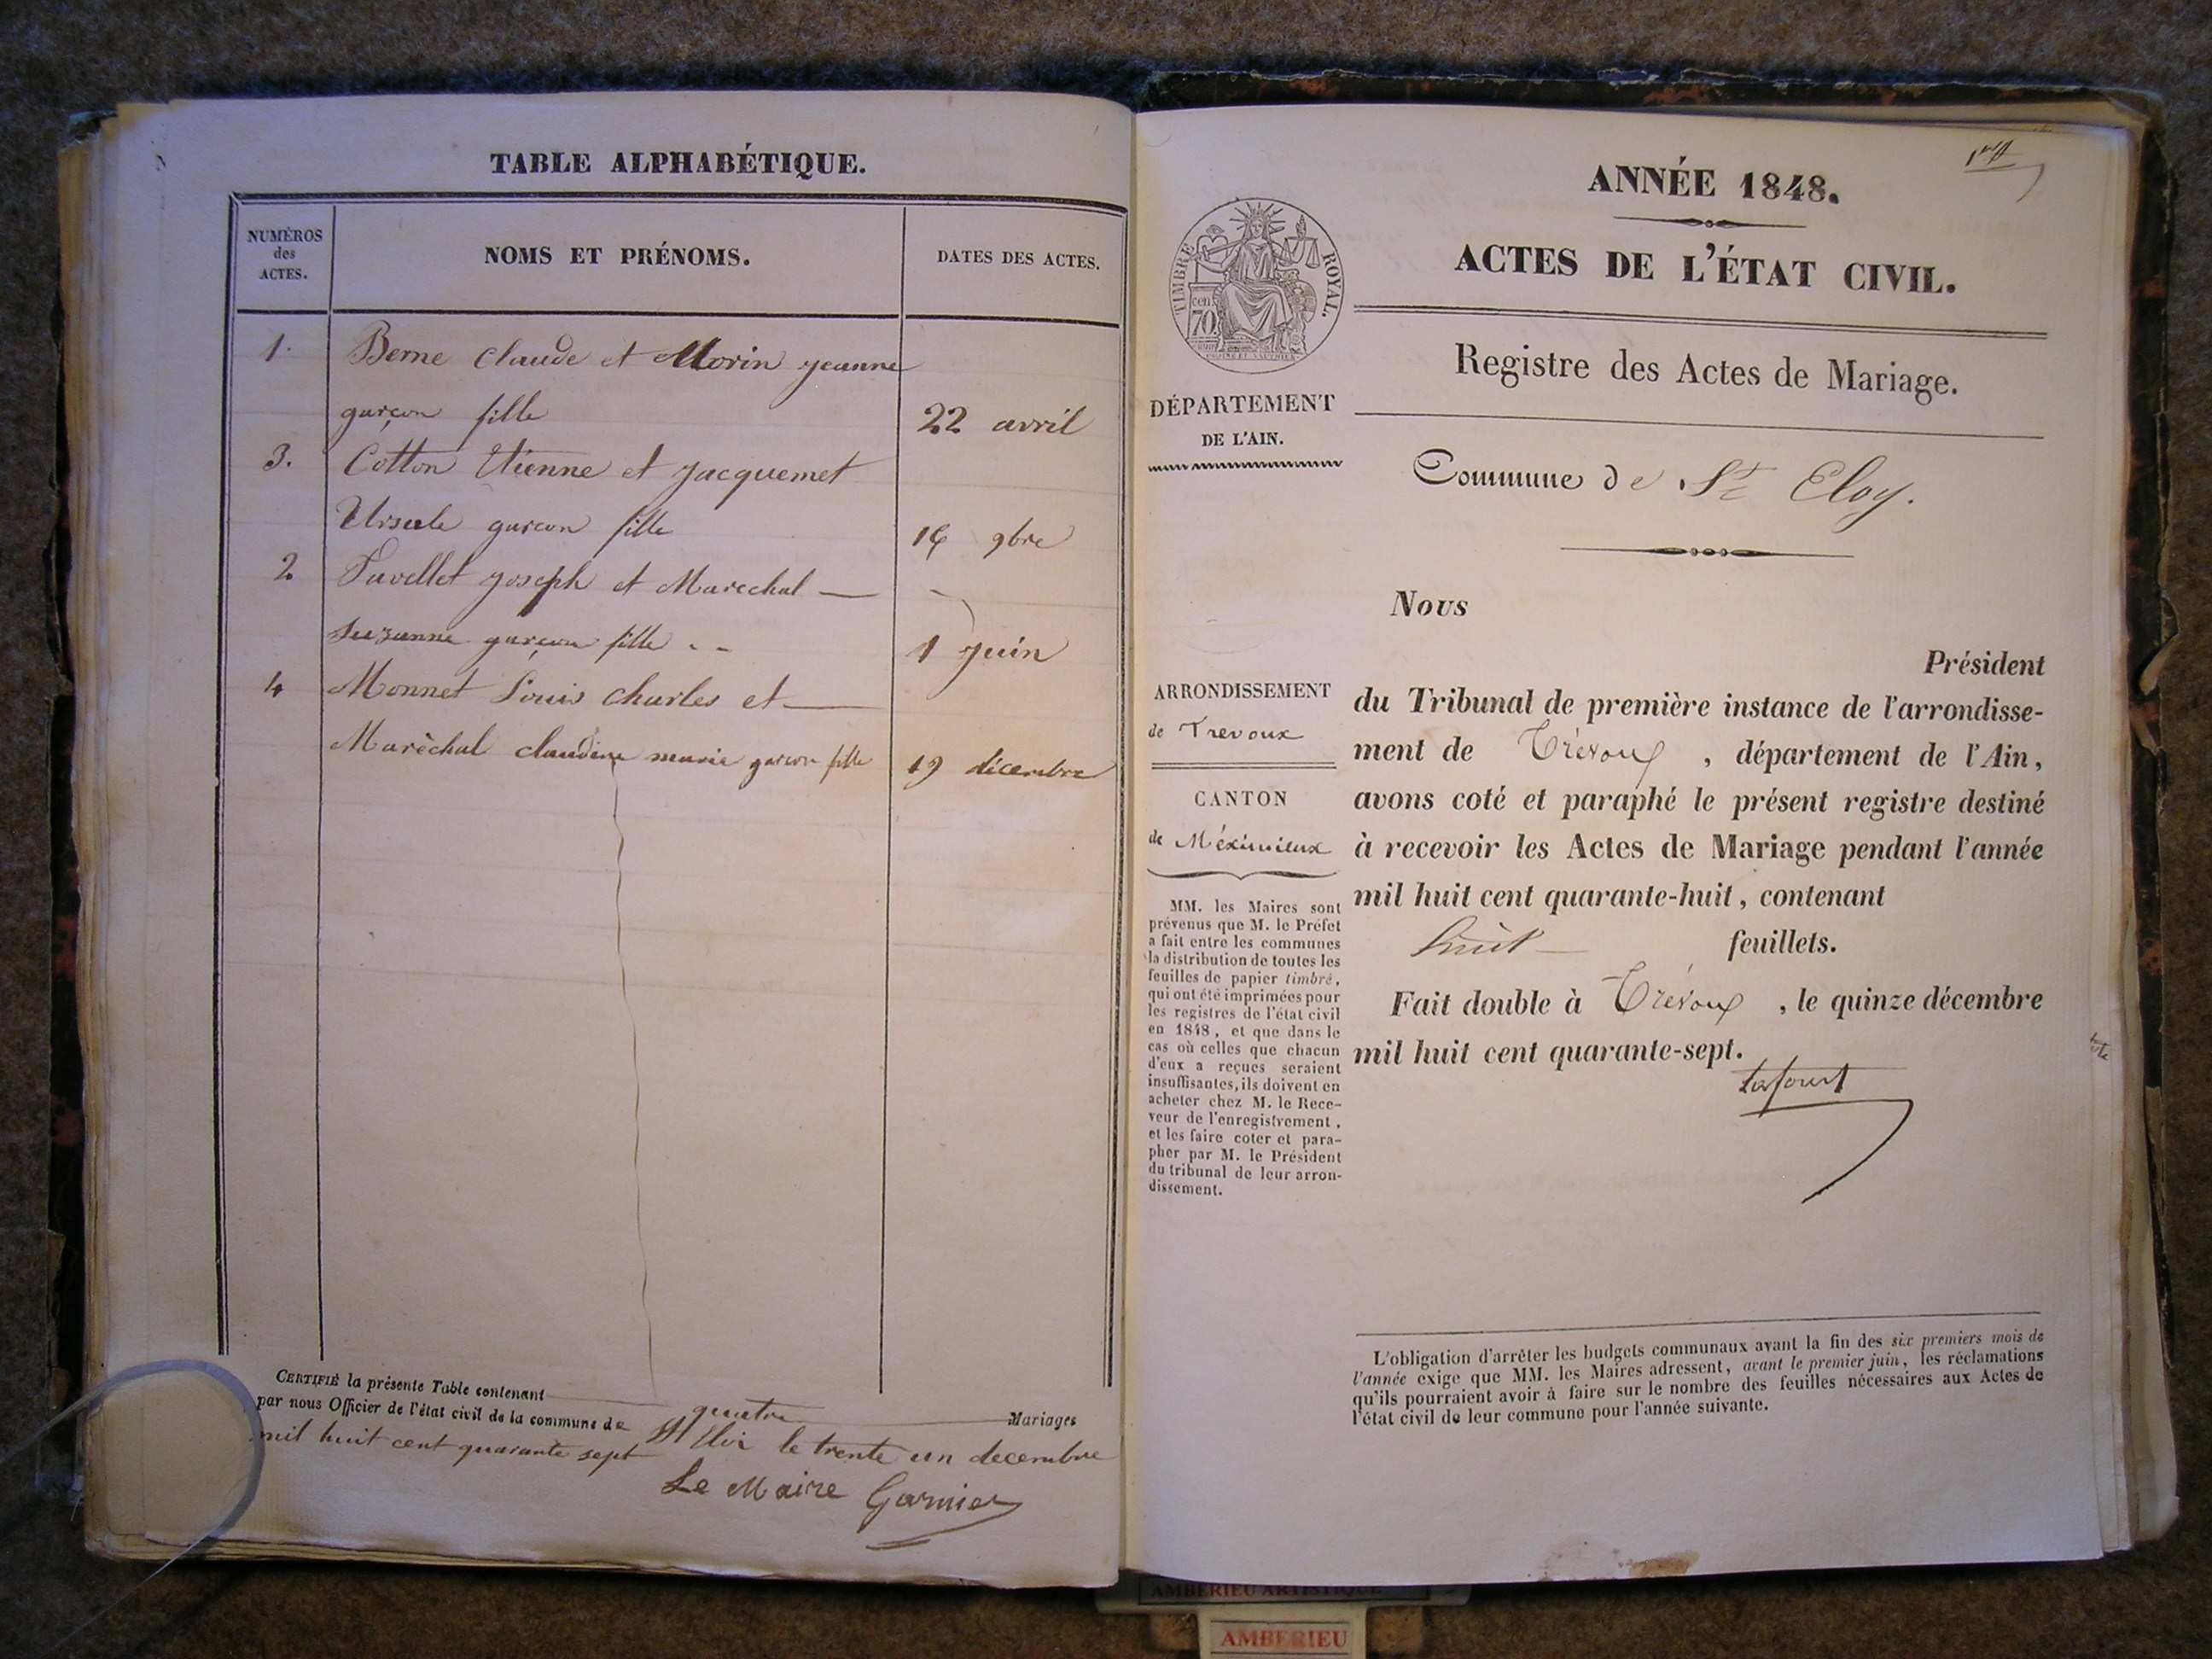 TABLE ALPHABÉTIQUE.
NUMÉROS
des
ACTES.
NOMS ET PRÉNOMS.
DATES DES ACTES.
1. Berne Claude et Morin jeanne
garçon fille 22 avril
3. Cotton Etienne et jacquemet
Ursule garçon fille 16 9bre
2 joseph et Marechal
suzanne garçon fille 1 juin
4 Monnet Louis charles et
Maréchal claudine marie garçon fille 19 décembre
CERTIFIÉ la présente Table contenant quatre Mariages
par nous Officier de l'état civil de la commune de St Eloi le trente un decembre
mil huit cent quarante sept
Le Maire Garnier
ANNÉE 1848.
ACTES DE L'ÉTAT CIVIL.
TIMBRE ROYAL.
cen.
70
Registre des Actes de Mariage.
DÉPARTEMENT
DE L'AIN.
Commune de St Eloy.
Nous
Président
ARRONDISSEMENT
de Trevoux
CANTON
de Méximieux
du Tribunal de première instance de l'arrondisse-
ment de Trévoux, département de l'Ain,
avons coté et paraphé le présent registre destiné
à recevoir les Actes de Mariage pendant l'année
mil huit cent quarante-huit, contenant
huit feuillets.
Fait double à Trévoux, le quinze décembre
mil huit cent quarante-sept.
MM. les Maires sont
prévenus que M. le Préfet
a fait entre les communes
la distribution de toutes les
feuilles de papier timbré,
qui ont été imprimées pour
les registres de l'état civil
en 1848, et que dans le
cas où celles que chacun
d'eux a reçues seraient
insuffisantes, ils doivent en
acheter chez M. le Rece-
veur de l'enregistrement,
et les faire coter et para-
pher par M. le Président
du tribunal de leur arron-
dissement.
L'obligation d'arrêter les budgets communaux avant la fin des six premiers mois de
l'année exige que MM. les Maires adressent, avant le premier juin, les réclamations
qu'ils pourraient avoir à faire sur le nombre des feuilles nécessaires aux Actes de
l'état civil de leur commune pour l'année suivante.
AMBERIEU ARTISTIQUE
AMBERIEU